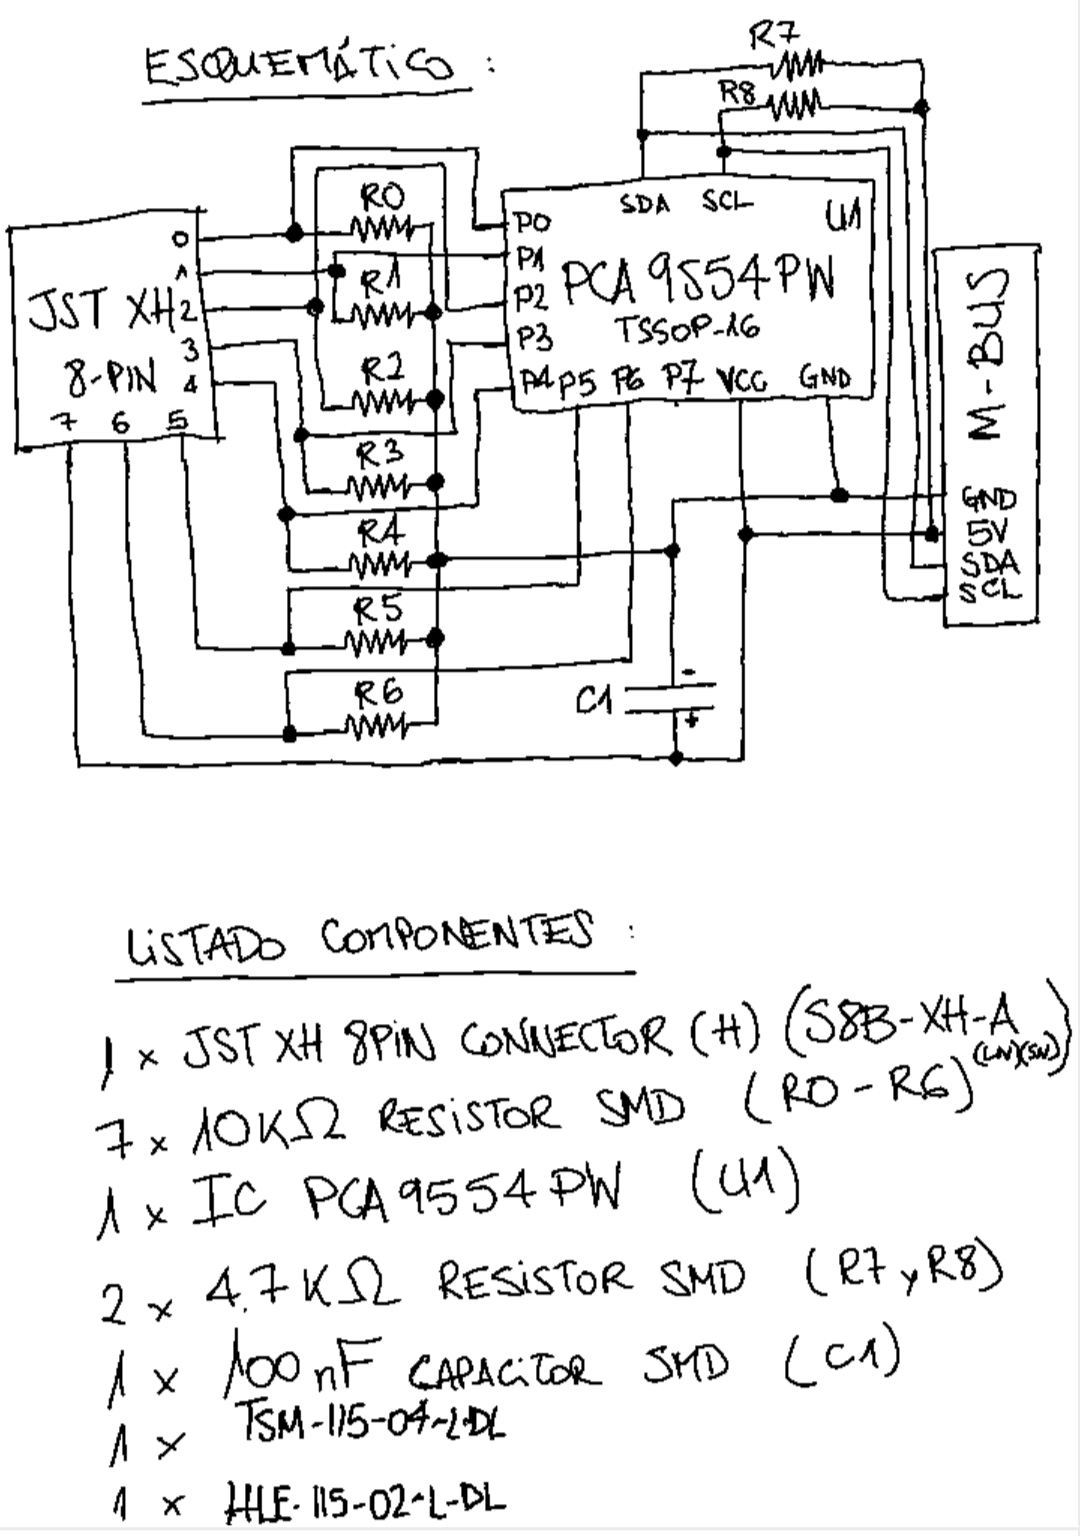 ESQUEMÁTICO :
R7
R8
R0
R1
R2
R3
R4
R5
R6
JST XH
8-PIN
0
1
2
3
4
7 6 5
SDA SCL U1
P0
P1
P2
P3
P4 P5 P6 P7 VCC GND
PCA 9554PW
TSSOP-16
M-BUS
GND
5V
SDA
SCL
C1
-
+
LISTADO COMPONENTES :
1 x JST XH 8PIN CONNECTOR (H) (S8B-XH-A (LN)(SN))
7 x 10KΩ RESISTOR SMD (R0 - R6)
1 x IC PCA9554PW (U1)
2 x 4.7KΩ RESISTOR SMD (R7 y R8)
1 x 100nF CAPACITOR SMD (C1)
1 x TSM-115-04-L-DL
1 x HLE-115-02-L-DL